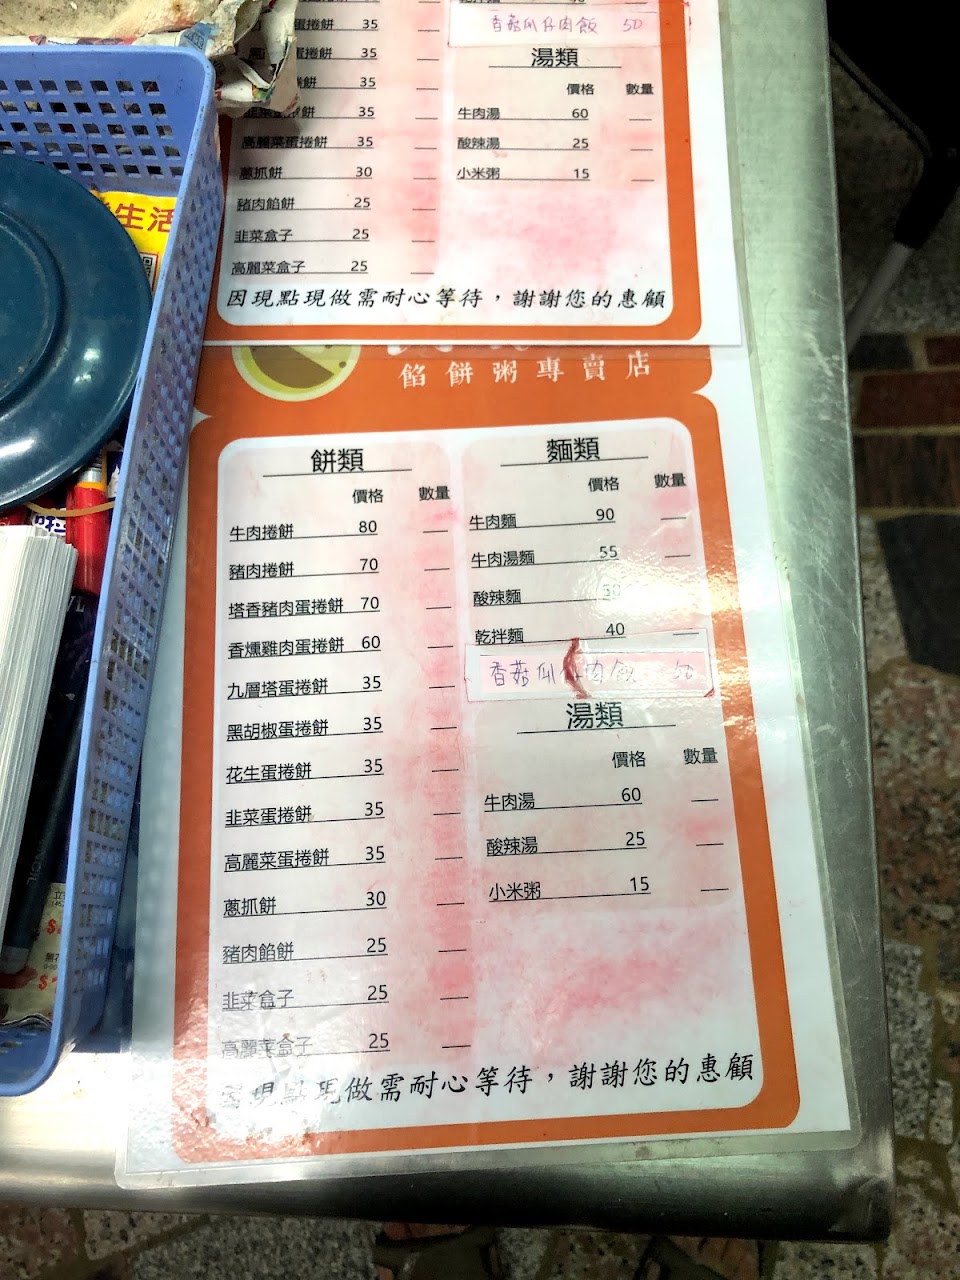 蛋捲餅 35
蛋捲餅 35
捲餅 35
韭菜蛋捲餅 35
高麗菜蛋捲餅 35
蔥抓餅 30
豬肉餡餅 25
韭菜盒子 25
高麗菜盒子 25
香菇瓜仔肉飯 50
湯類
價格 數量
牛肉湯 60
酸辣湯 25
小米粥 15
因現點現做需耐心等待，謝謝您的惠顧
生活
餡餅粥專賣店
餅類
價格 數量
牛肉捲餅 80
豬肉捲餅 70
塔香豬肉蛋捲餅 70
香燻雞肉蛋捲餅 60
九層塔蛋捲餅 35
黑胡椒蛋捲餅 35
花生蛋捲餅 35
韭菜蛋捲餅 35
高麗菜蛋捲餅 35
蔥抓餅 30
豬肉餡餅 25
韭菜盒子 25
高麗菜盒子 25
麵類
價格 數量
牛肉麵 90
牛肉湯麵 55
酸辣麵 50
乾拌麵 40
香菇瓜仔肉飯 50
湯類
價格 數量
牛肉湯 60
酸辣湯 25
小米粥 15
因現點現做需耐心等待，謝謝您的惠顧